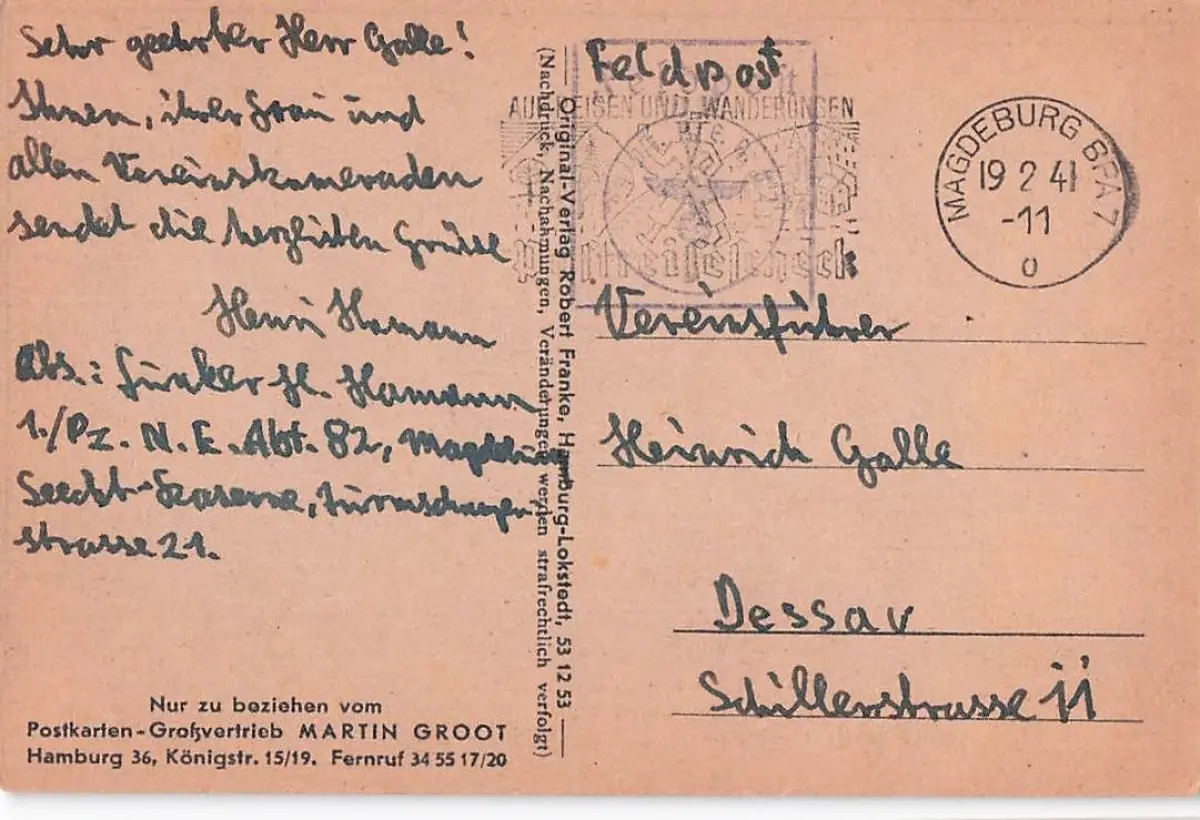 Sehr geehrter Herr Galle!
Ihnen, ihrer Frau und
allen Vereinskameraden
sendet die herzlisten Grüsse
Heini Hamann
Abs.: Funker H. Hamann
1./Pz. N. E. Abt. 82, Magdeburg
Seeckt-Kaserne, Turmschanzen-
strasse 21.
Nur zu beziehen vom
Postkarten-Großvertrieb MARTIN GROOT
Hamburg 36, Königstr. 15/19. Fernruf 34 55 17/20
Original-Verlag Robert Franke, Hamburg-Lokstedt, 53 12 53
(Nachdruck, Nachahmungen, Veränderungen werden strafrechtlich verfolgt)
Feldpost
AUF REISEN UND WANDERUNGEN
Postreisescheck
MAGDEBURG BPA 7
19 2 41
-11
o
Vereinsführer
Heinrich Galle
Dessau
Schillerstrasse 11